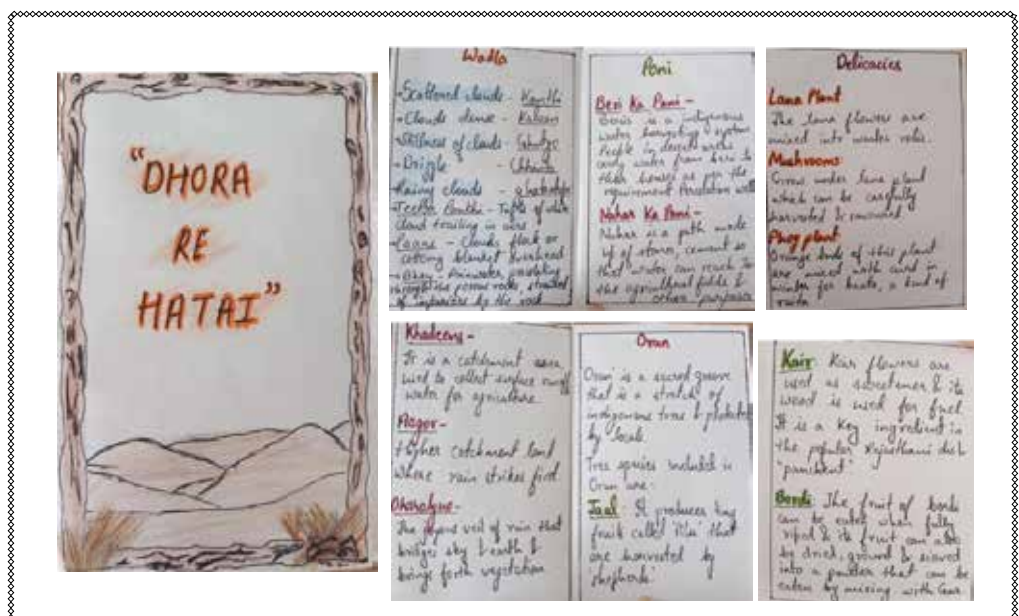 "DHORA
RE
HATAI"
Wadla
Scattered clouds - Kanthi
Clouds dense -
Stillness of clouds -
Drizzle -
Rainy clouds -
cloud trailing in
Clouds flock or
blanket overhead
- Rainwater
through the porous rocks,
by the rock
Poni
Beri Ka Pani -
Beris is a indigenous
water harvesting system
People in deserts areas
carry water from beri to
their houses as per the
requirement Percolation well
Nahar Ka Pani -
Nahar is a path made
up of stones, cement so
that water can reach to
the agricultural fields &
other purposes
Delicacies
Lana Plant
The lana flowers are
mixed into winter rotis.
Mushrooms
Grows under lana plant
which can be carefully
harvested & consumed
Phog plant
Orange buds of this plant
are mixed with curd in
winter for, a kind of
raita
Khadeens -
It is a catchment area
used to collect surface runoff
water for agriculture.
Aagor -
Higher catchment land
where rain strikes first
The veil of rain that
bridges sky & earth &
brings forth vegetation
Oran
Oran is a sacred groove
that is a stretch of
indigenous trees & protected
by locals.
Tree species included in
Oran are -
Jaal It produces tiny
fruits called that
are harvested by
shepherds
Kair Kair flowers are
used as sweetener & its
wood is used for fuel
It is a key ingredient in
the popular Rajasthani dish
Bordi The fruit of bordi
can be eaten when fully
riped & its fruit can also
be dried, ground & sieved
into a powder that can be
eaten by mixing with